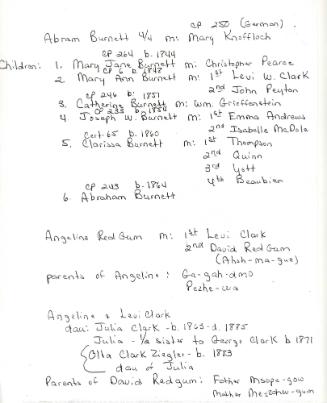 CP 250 (German)
Abram Burnett 4/4 m: Mary Knoffloch
CP 264 b. 1844
Children: 1. Mary Jane Burnett m: Christopher Pearce
CP 6 b. 1848
2. Mary Ann Burnett m: 1st Levi W. Clark
2nd John Peyton
CP 246 b: 1851
3. Catherine Burnett m: Wm. Grieffenstein
CP 235 b. 1856
4. Joseph W. Burnett m: 1st Emma Andrews
2nd Isabelle McDole
Cert-65 b. 1860
5. Clarissa Burnett m: 1st Thompson
2nd Quinn
3rd Yott
4th Beaubien
CP 243 b-1864
6. Abraham Burnett
Angeline RedGum m: 1st Levi Clark
2nd David RedGum
(Ahsh-ma-gue)
parents of Angeline: Ga-gah-dmo
Pezhe-wa
Angeline & Levi Clark
dau: Julia Clark - b. 1865-d. 1885
Julia - 1/2 sister to George Clark b 1871
Olla Clark Ziegler- b. 1883
dau of Julia
Parents of David Redgum: Father Msopa-gow
Mother